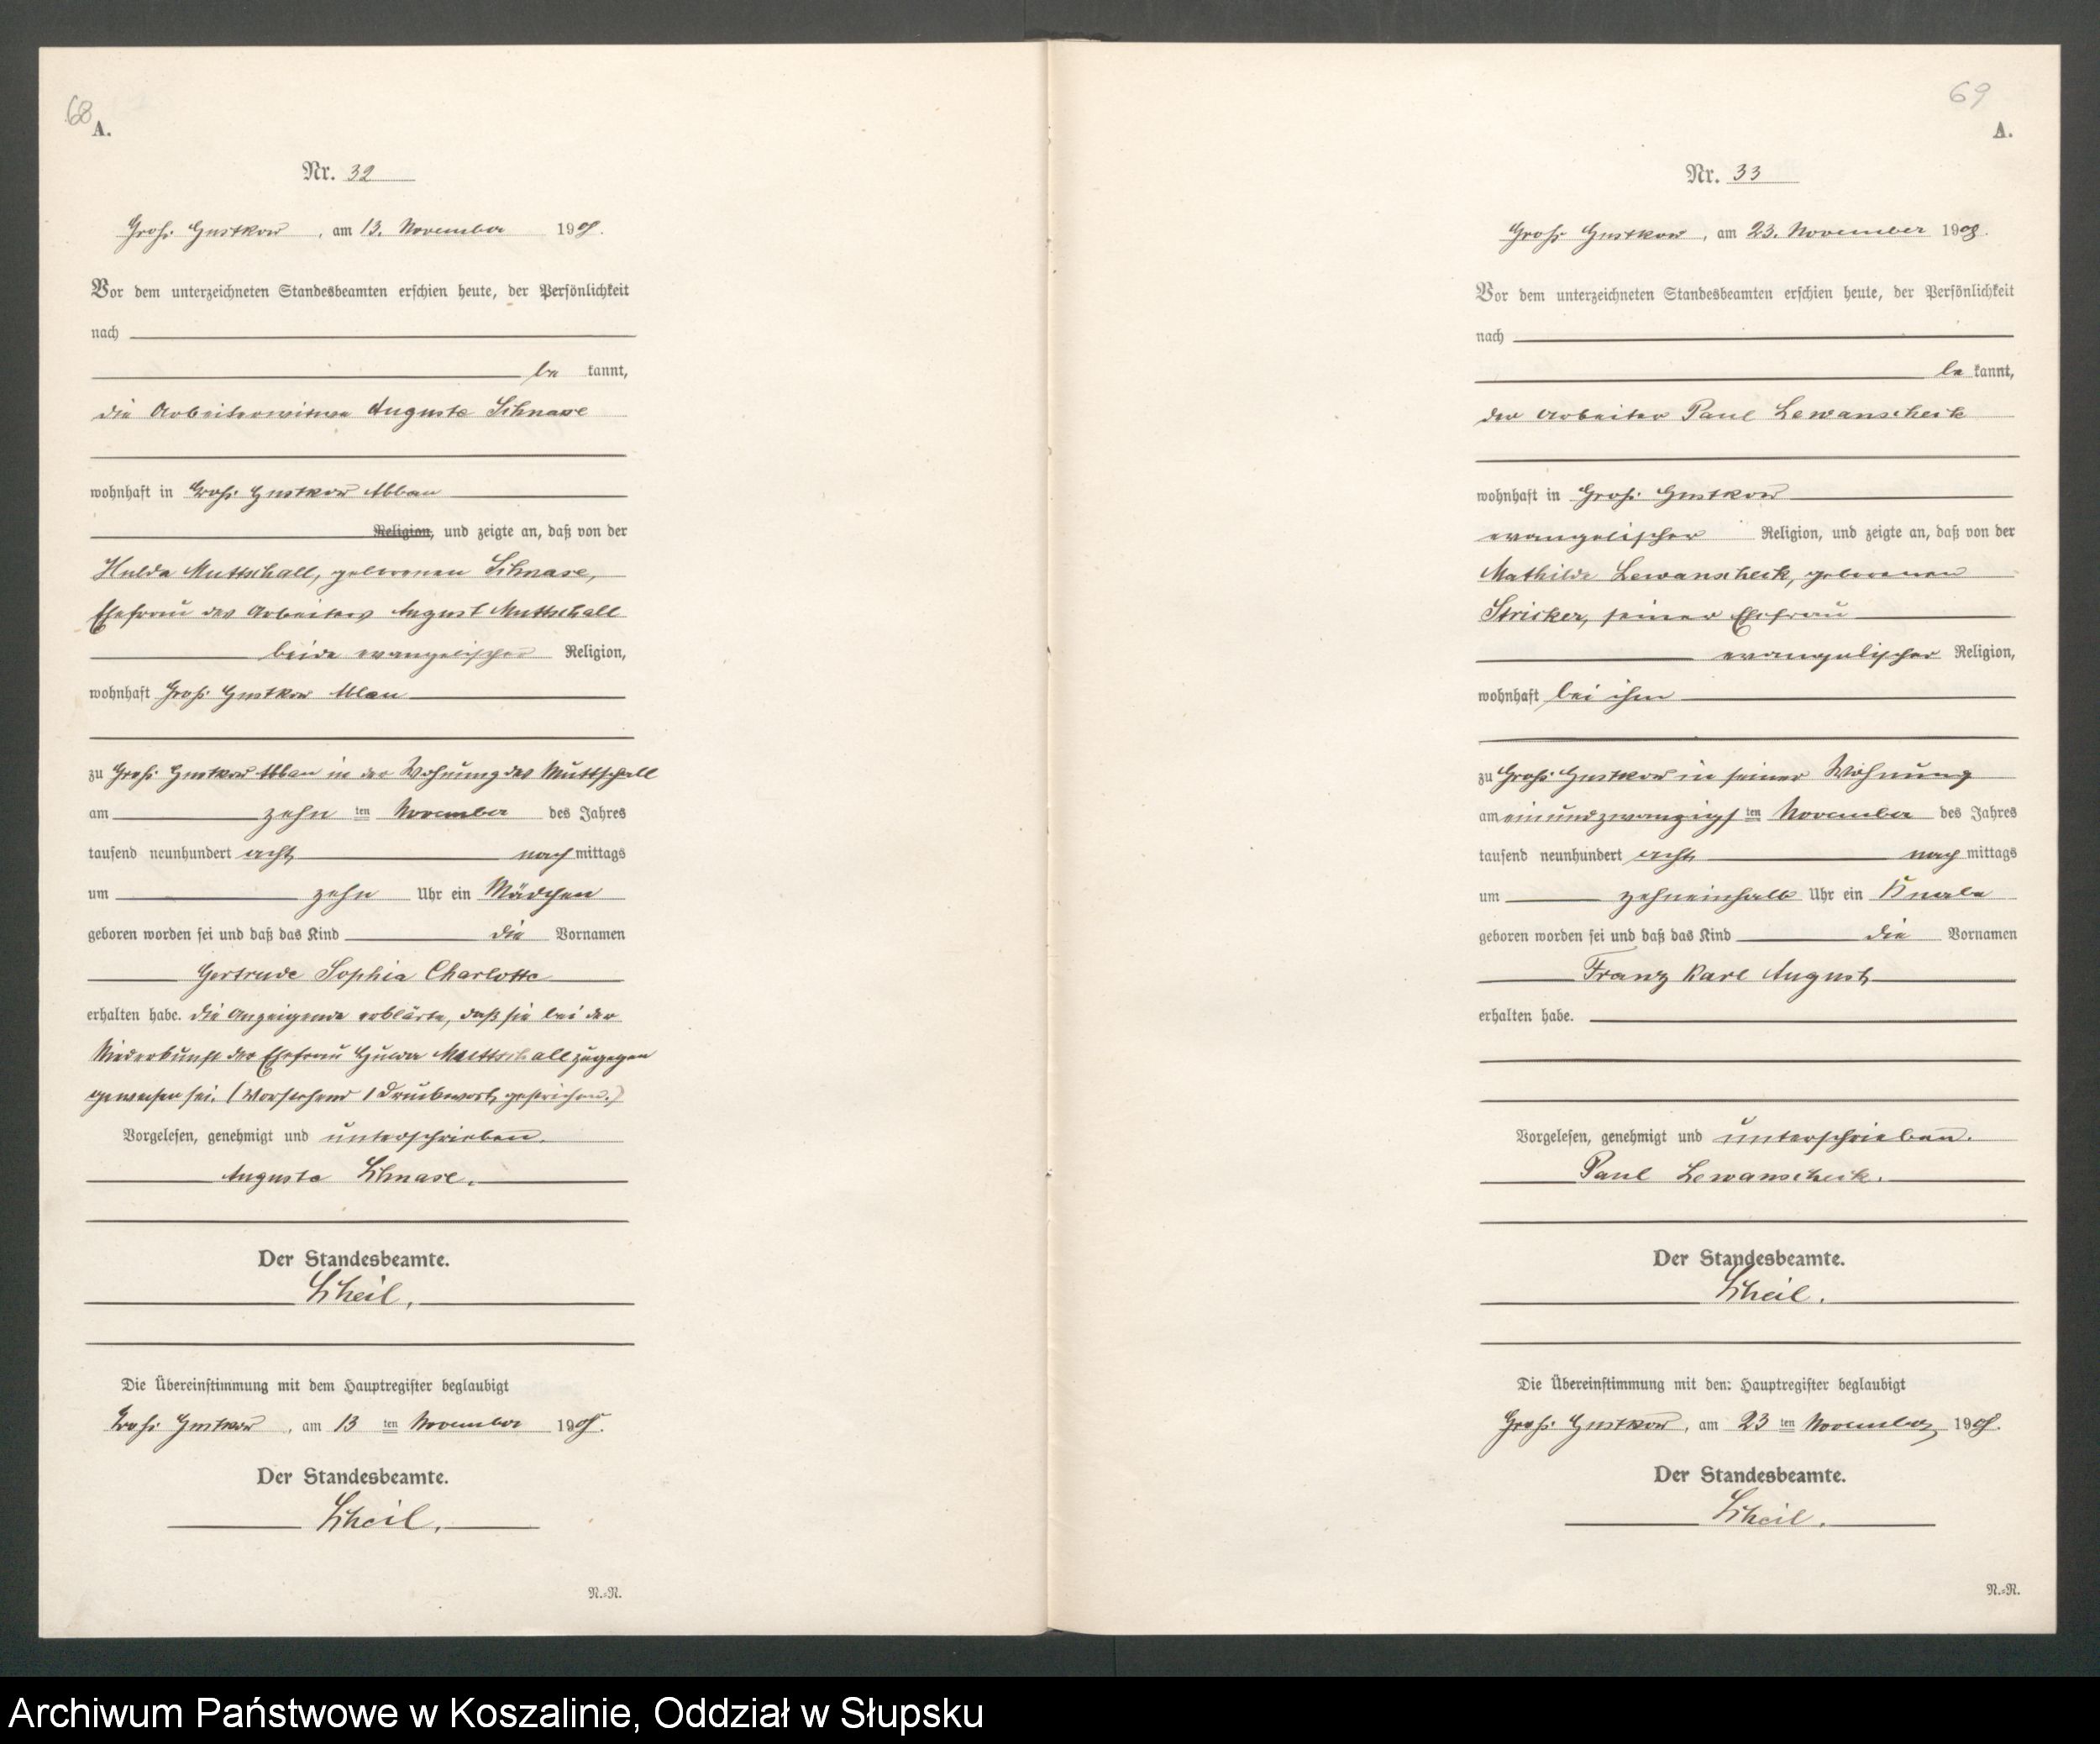 68
A.
Nr. 32
Groß Gustkow, am 13. November 1908.
Vor dem unterzeichneten Standesbeamten erschien heute, der Persönlichkeit
nach
be kannt,
die Arbeiterwitwe Auguste Schnase
wohnhaft in Groß Gustkow Abbau
Religion, und zeigte an, daß von der
Hulda Muttschall, geborenen Schnase,
Ehefrau des Arbeiters August Muttschall
beide evangelischer Religion,
wohnhaft Groß Gustkow Abbau
zu Groß Gustkow Abbau in der Wohnung des Muttschall
am zehn ten November des Jahres
tausend neunhundert acht nach mittags
um zehn Uhr ein Mädchen
geboren worden sei und daß das Kind die Vornamen
Gertrude Sophia Charlotte
erhalten habe. Die Anzeigende erklärte, daß sie bei der
Niederkunft der Ehefrau Hulda Muttschall zugegen
gewesen sei. (Vorstehend 1 Druckwort gestrichen.)
Vorgelesen, genehmigt und unterschrieben.
Auguste Schnase.
Der Standesbeamte.
Scheil.
Die Übereinstimmung mit dem Hauptregister beglaubigt
Groß Gustkow, am 13 ten November 1908.
Der Standesbeamte.
Scheil.
N.=N.
69
A.
Nr. 33
Groß Gustkow, am 23. November 1908.
Vor dem unterzeichneten Standesbeamten erschien heute, der Persönlichkeit
nach
be kannt,
der Arbeiter Paul Lewanscheck
wohnhaft in Groß Gustkow
evangelischer Religion, und zeigte an, daß von der
Mathilde Lewanscheck, geborenen
Stricker, seiner Ehefrau
evangelischer Religion,
wohnhaft bei ihm
zu Groß Gustkow in seiner Wohnung
am einundzwanzigs ten November des Jahres
tausend neunhundert acht nach mittags
um zehneinhalb Uhr ein Knabe
geboren worden sei und daß das Kind die Vornamen
Franz Karl August
erhalten habe.
Vorgelesen, genehmigt und unterschrieben.
Paul Lewanscheck.
Der Standesbeamte.
Scheil.
Die Übereinstimmung mit dem Hauptregister beglaubigt
Groß Gustkow, am 23 ten November 1908.
Der Standesbeamte.
Scheil.
N.=N.
Archiwum Państwowe w Koszalinie, Oddział w Słupsku